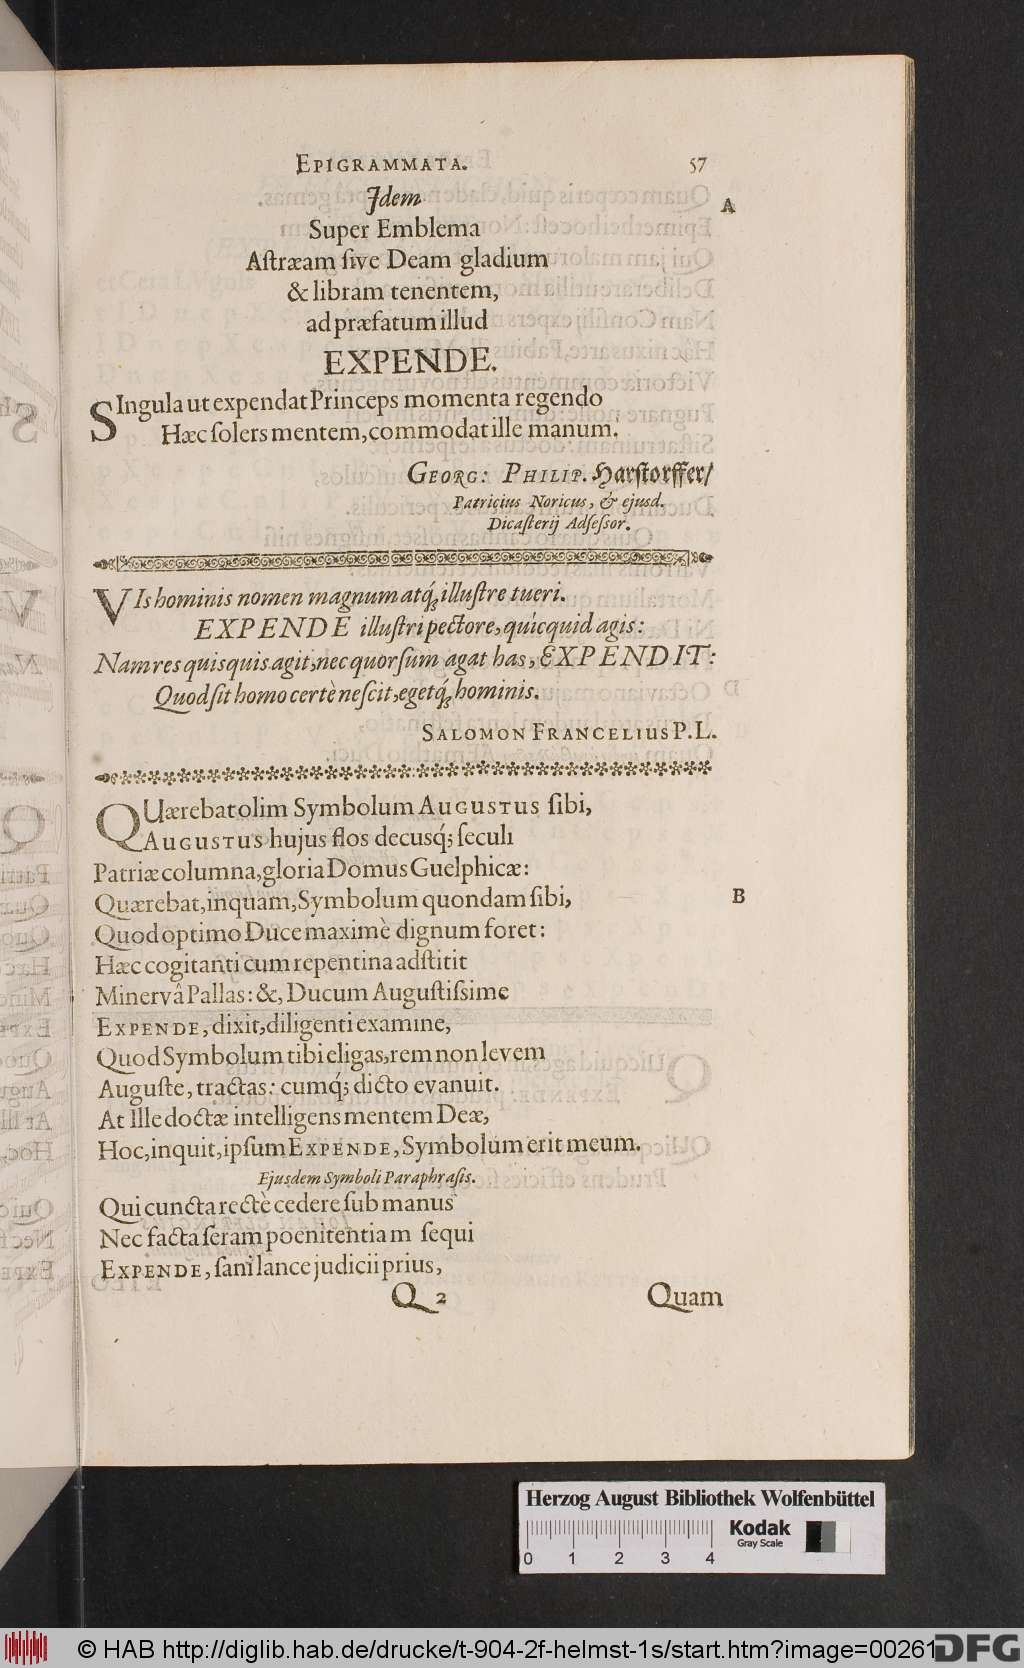 EPIGRAMMATA. 57
Idem A
Super Emblema
Aſtræam ſive Deam gladium
& libram tenentem,
ad præfatum illud
EXPENDE.
SIngula ut expendat Princeps momenta regendo
Hæc ſolers mentem, commodat ille manum.
GEORG: PHILIP. Harſtorffer/
Patricius Noricus, & ejusd.
Dicaſterij Adſeſſor.
VIs hominis nomen magnum atq́; illuſtre tueri.
EXPENDE illuſtri pectore, quicquid agis:
Nam res quisquis agit, nec quorſum agat has, EXPENDIT:
Quod ſit homo certè neſcit, egetq́; hominis.
SALOMON FRANCELIUS P. L.
QUærebat olim Symbolum AUGUSTUS ſibi,
AUGUSTUS hujus flos decusq́; ſeculi
Patriæ columna, gloria Domus Guelphicæ:
Quærebat, inquam, Symbolum quondam ſibi, B
Quod optimo Duce maximè dignum foret:
Hæc cogitanti cum repentina adſtitit
Minervâ Pallas: &, Ducum Auguſtiſsime
EXPENDE, dixit, diligenti examine,
Quod Symbolum tibi eligas, rem non levem
Auguſte, tractas: cumq́; dicto evanuit.
At Ille doctæ intelligens mentem Deæ,
Hoc, inquit, ipſum EXPENDE, Symbolum erit meum.
Ejusdem Symboli Paraphraſis.
Qui cuncta rectè cedere ſub manus
Nec facta ſeram poenitentiam ſequi
EXPENDE, ſani lance judicii prius,
Q 2 Quam
Herzog August Bibliothek Wolfenbüttel
Kodak
Gray Scale
0 1 2 3 4
© HAB http://diglib.hab.de/drucke/t-904-2f-helmst-1s/start.htm?image=00261
DFG